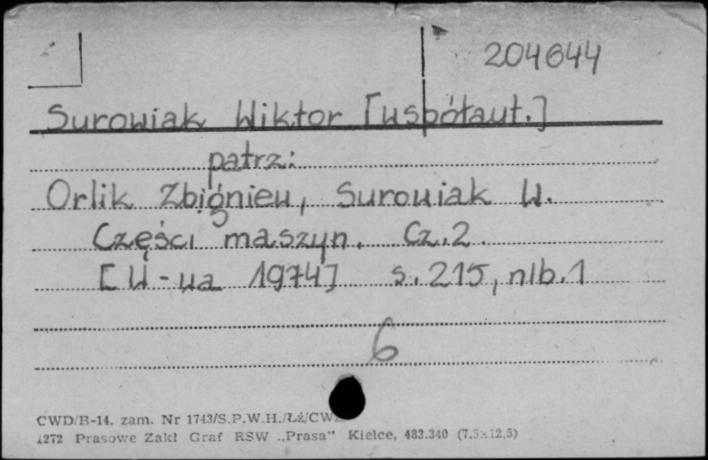 204644
Surowiak Wiktor [współaut.]
patrz:
Orlik Zbigniew, Surowiak W.
Części maszyn. Cz. 2.
[W-wa 1974] s. 215, nlb. 1
6
CWD/B-14. zam. Nr 1743/S.P.W.H./Łź/CW
1272 Prasowe Zakł Graf RSW „Prasa" Kielce, 483.340 (7,5x12,5)